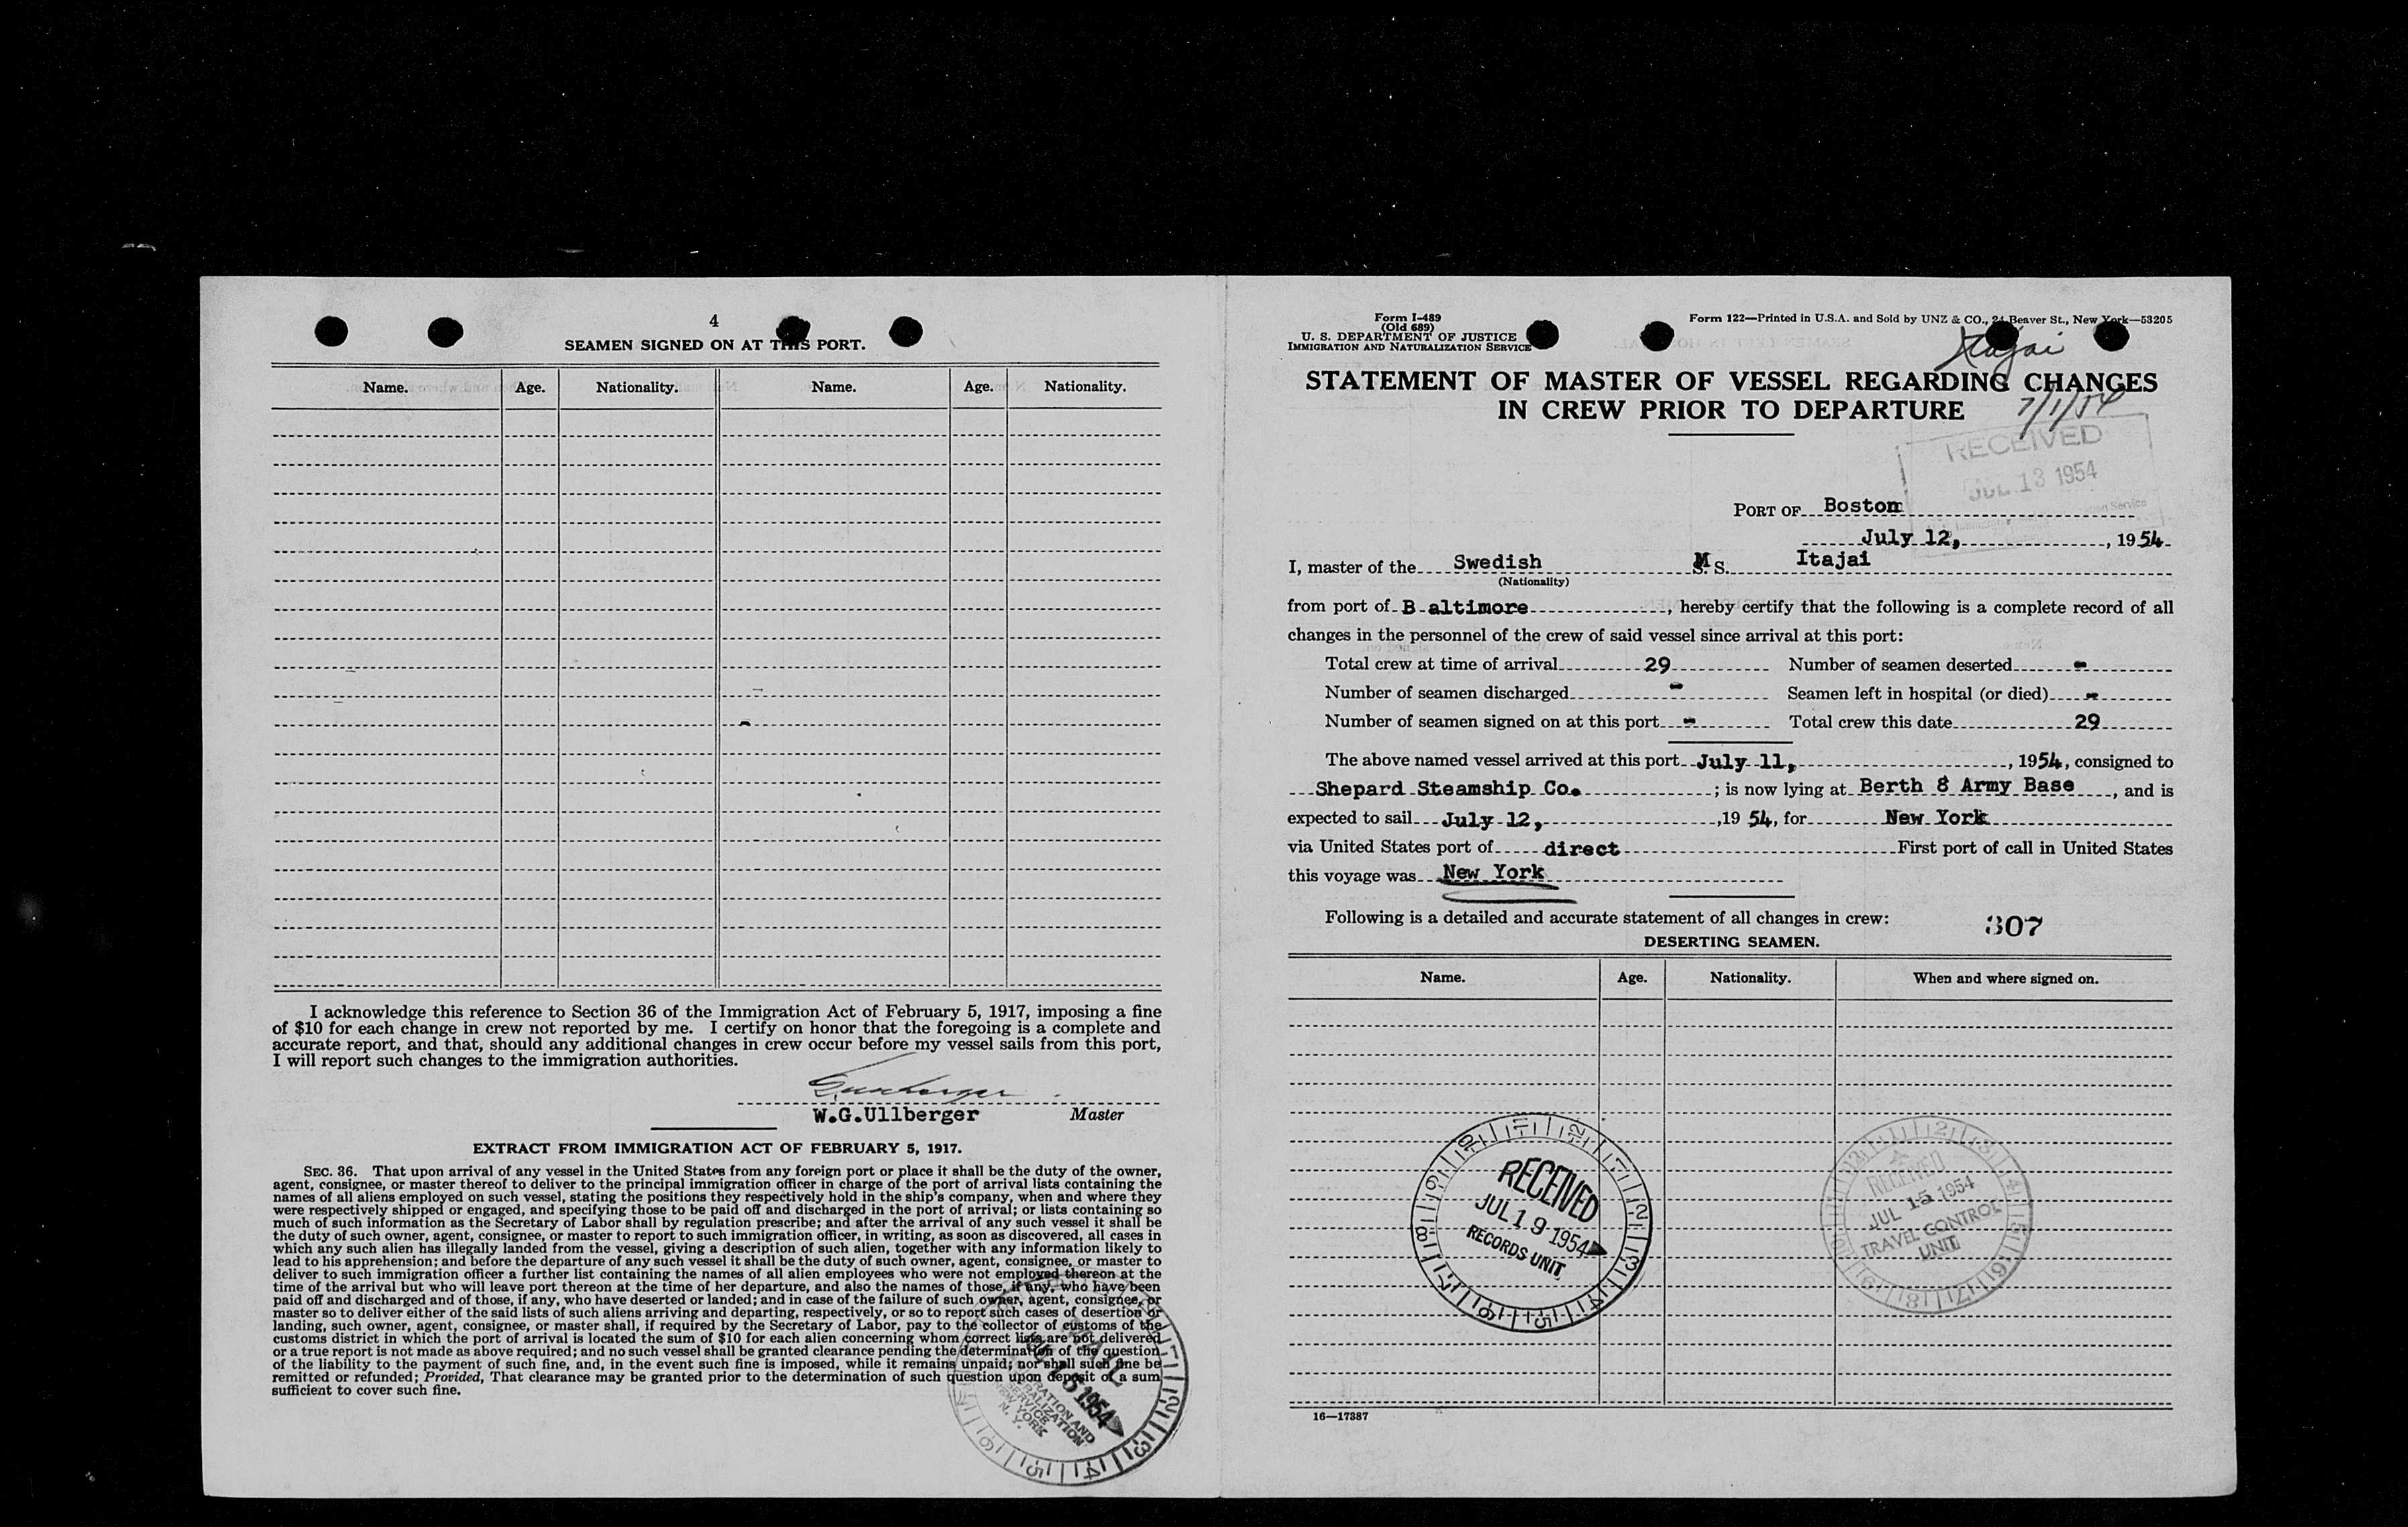 4
SEAMEN SIGNED ON AT THIS PORT.
Name. Age. Nationality. Name. Age. Nationality.
I acknowledge this reference to Section 36 of the Immigration Act of February 5, 1917, imposing a fine
of $10 for each change in crew not reported by me. I certify on honor that the foregoing is a complete and
accurate report, and that, should any additional changes in crew occur before my vessel sails from this port,
I will report such changes to the immigration authorities.
W.G.Ullberger Master
EXTRACT FROM IMMIGRATION ACT OF FEBRUARY 5, 1917.
SEC. 36. That upon arrival of any vessel in the United States from any foreign port or place it shall be the duty of the owner,
agent, consignee, or master thereof to deliver to the principal immigration officer in charge of the port of arrival lists containing the
names of all aliens employed on such vessel, stating the positions they respectively hold in the ship's company, when and where they
were respectively shipped or engaged, and specifying those to be paid off and discharged in the port of arrival; or lists containing so
much of such information as the Secretary of Labor shall by regulation prescribe; and after the arrival of any such vessel it shall be
the duty of such owner, agent, consignee, or master to report to such immigration officer, in writing, as soon as discovered, all cases in
which any such alien has illegally landed from the vessel, giving a description of such alien, together with any information likely to
lead to his apprehension; and before the departure of any such vessel it shall be the duty of such owner, agent, consignee, or master to
deliver to such immigration officer a further list containing the names of all alien employees who were not employed thereon at the
time of the arrival but who will leave port thereon at the time of her departure, and also the names of those, if any, who have been
paid off and discharged and of those, if any, who have deserted or landed; and in case of the failure of such owner, agent, consignee, or
master so to deliver either of the said lists of such aliens arriving and departing, respectively, or so to report such cases of desertion or
landing, such owner, agent, consignee, or master shall, if required by the Secretary of Labor, pay to the collector of customs of the
customs district in which the port of arrival is located the sum of $10 for each alien concerning whom correct lists are not delivered
or a true report is not made as above required; and no such vessel shall be granted clearance pending the determination of the question
of the liability to the payment of such fine, and, in the event such fine is imposed, while it remains unpaid; nor shall such fine be
remitted or refunded; Provided, That clearance may be granted prior to the determination of such question upon deposit of a sum
sufficient to cover such fine.
MAIL
1954
SERVICE
NEW YORK
N. Y.
Form I-489
(Old 689)
U. S. DEPARTMENT OF JUSTICE
IMMIGRATION AND NATURALIZATION SERVICE
Form 122—Printed in U.S.A. and Sold by UNZ & CO., 24 Beaver St., New York—53205
Itajai
STATEMENT OF MASTER OF VESSEL REGARDING CHANGES
IN CREW PRIOR TO DEPARTURE
7/1/54
RECEIVED
JUL 13 1954
PORT OF Boston
July 12, , 1954
I, master of the Swedish M S. Itajai
(Nationality)
from port of B altimore , hereby certify that the following is a complete record of all
changes in the personnel of the crew of said vessel since arrival at this port:
Total crew at time of arrival 29 Number of seamen deserted -
Number of seamen discharged - Seamen left in hospital (or died) -
Number of seamen signed on at this port - Total crew this date 29
The above named vessel arrived at this port July 11, , 1954, consigned to
Shepard Steamship Co. ; is now lying at Berth 8 Army Base , and is
expected to sail July 12, ,19 54, for New York
via United States port of direct First port of call in United States
this voyage was New York
Following is a detailed and accurate statement of all changes in crew: 307
DESERTING SEAMEN.
Name. Age. Nationality. When and where signed on.
RECEIVED
JUL 19 1954
RECORDS UNIT
RECEIVED
JUL 15 1954
TRAVEL CONTROL
UNIT
16—17387